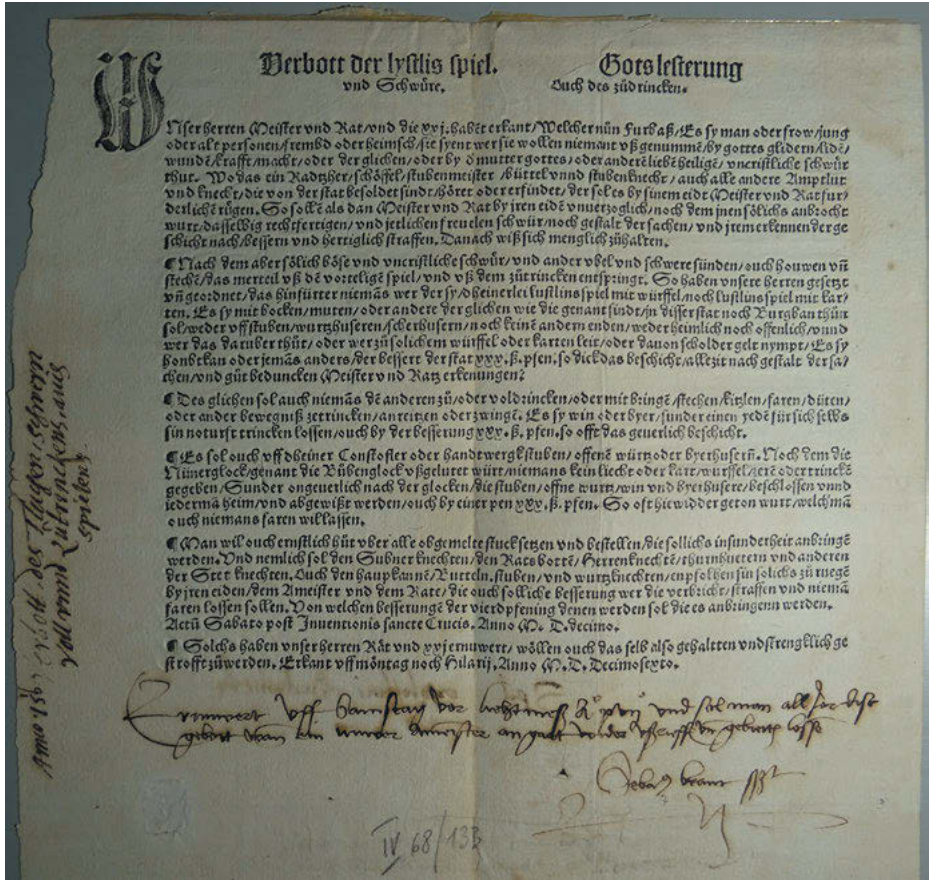 Verbott der lystlis spiel. Gotslesterung
vnd Schwüre. Ouch des zůdrincken.
VNser herren Meister vnd Rat/vnd die xxj. habēt erkant/Welcher nün Furbaß/Es sy man oder frow/jung
oder alt personen/frembd oder heimsch/sie syent wer sie wollen niemant vßgenummē/by gottes glidern/lidē/
wundē/krafft/macht/oder der glichen/oder by d mutter gottes/oder andere liebē heilige/vncristliche schwür
thut. Wo das ein Radtzher/schöffel/stubenmeister/büttel vnnd stubenknecht/auch alle andere Amptlüt
vnd knecht/die von der stat besoldet sindt/höret oder erfindet/der sol es by sinem eidt Meister vnd Rat fur/
derlichē rügen. So sollē als dan Meister vnd Rat by jren eidē vnuerzoglich/noch dem jnen sölichs anbrocht
wurt/dasselbig rechtfertigen/vnd jetlichen freuelen schwür/noch gestalt der sachen/vnd jrem erkennen der ge
schicht nach/bessern vnd hertiglich straffen. Danach wiß sich menglich zůhalten.
¶ Nach dem aber sölich böse vnd vncristliche schwür/vnd ander vbel vnd schwere sünden/ouch houwen vñ
stechē/das merteil vß dē vorteligē spiel/vnd vß dem zůtrincken entspringt. So haben vnsere herren gesetzt
vñ geordnet/das hinfürter niemās wer der sy/dheinerlei lustlins spiel mit würffel/noch lustlins spiel mit kar/
ten. Es sy mit bocken/muten/oder andere der glichen wie die genant sindt/in disser stat noch Burgban thün
sol/weder vff stuben/wurtzhuseren/scherhusern/noch keinē andern enden/weder heimlich noch offenlich/vnnd
wer das daruber thüt/oder wer zů solichem würffel oder karten leit/oder dauon scholder gelt nympt/Es sy
houbtkan oder jemās anders/der bessert der stat xxx.ß.pfen.so dick das beschicht/allezit nach gestalt der sa/
chen/vnd gůt beduncken Meister vnd Ratz erkenungen?
¶ Des glichen sol auch niemās dē anderen zů/oder voldrincken/oder mit bringē/stechen/kitzlen/faren/düten/
oder ander bewegniß zetrincken/anreitzen oder zwingē. Es sy win oder byer/sunder einen yedē für sich selbs
sin noturft trincken lossen/ouch by der besserung xxx.ß.pfen.so offt das geuerlich beschicht.
¶ Es sol ouch vff dheiner Constofler oder handtwergk stuben/offenē würtz oder byerhusern. Noch dem die
Nünerglock/genant die Rübenglock vßgelutet würt/niemans kein liecht oder kart/wurffel/zerē oder trinckē
gegeben/Sunder ongeuerlich nach der glocken/die stuben/offne wurtz/win vnd byerhusere/beschlossen vnnd
iederma heim/vnd abgewißt werden/ouch by einer pen xxx.ß.pfen. So oft hie widder geton wurt/welchmā
ouch niemans faren will lassen.
¶ Man wil ouch ernstlich hüt vber alle obgemelte stuck setzen vnd bestellen/die sollichs insunderheit anbringē
werden. Vnd nemlich sol den Subner knechten/den Rats bottē/Herren knechtē/thurnhuetern vnd anderen
der Stet knechten. Ouch den haupkannē/Butteln/stuben/vnd wurtzknechten/enpfolhen sin solichs zů ruegē
by jren eiden/dem Ameister vnd dem Rate/die ouch solliche besserung wer die verbricht/straffen vnd niemā
faren lossen sollen. Von welchen besserungē der vierd pfening denen werden sol die es anbringenn werden.
Actū Sabato post Inuentionis sancte Crucis. Anno M.D.decimo.
¶ Solchs haben vnser herren Rät vnd xxj ernuwert/wöllen ouch das selb also gehaltten vnd strengklich ge
strofft zů werden. Erkant vff möntag noch Hilarij. Anno M.D.Decimosexto.
Ernuwert vff Samstag vor liechtmess Aº xvij und sol man all Jor dis
gebott wan ein nuwer Ameister angatt wider vßrieffen vñ gebietten losse
Sebasº brant sst
IV 68/133